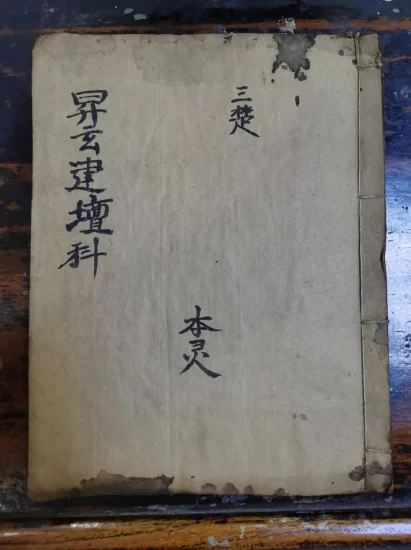 三楚
本灵
昇玄建壇科